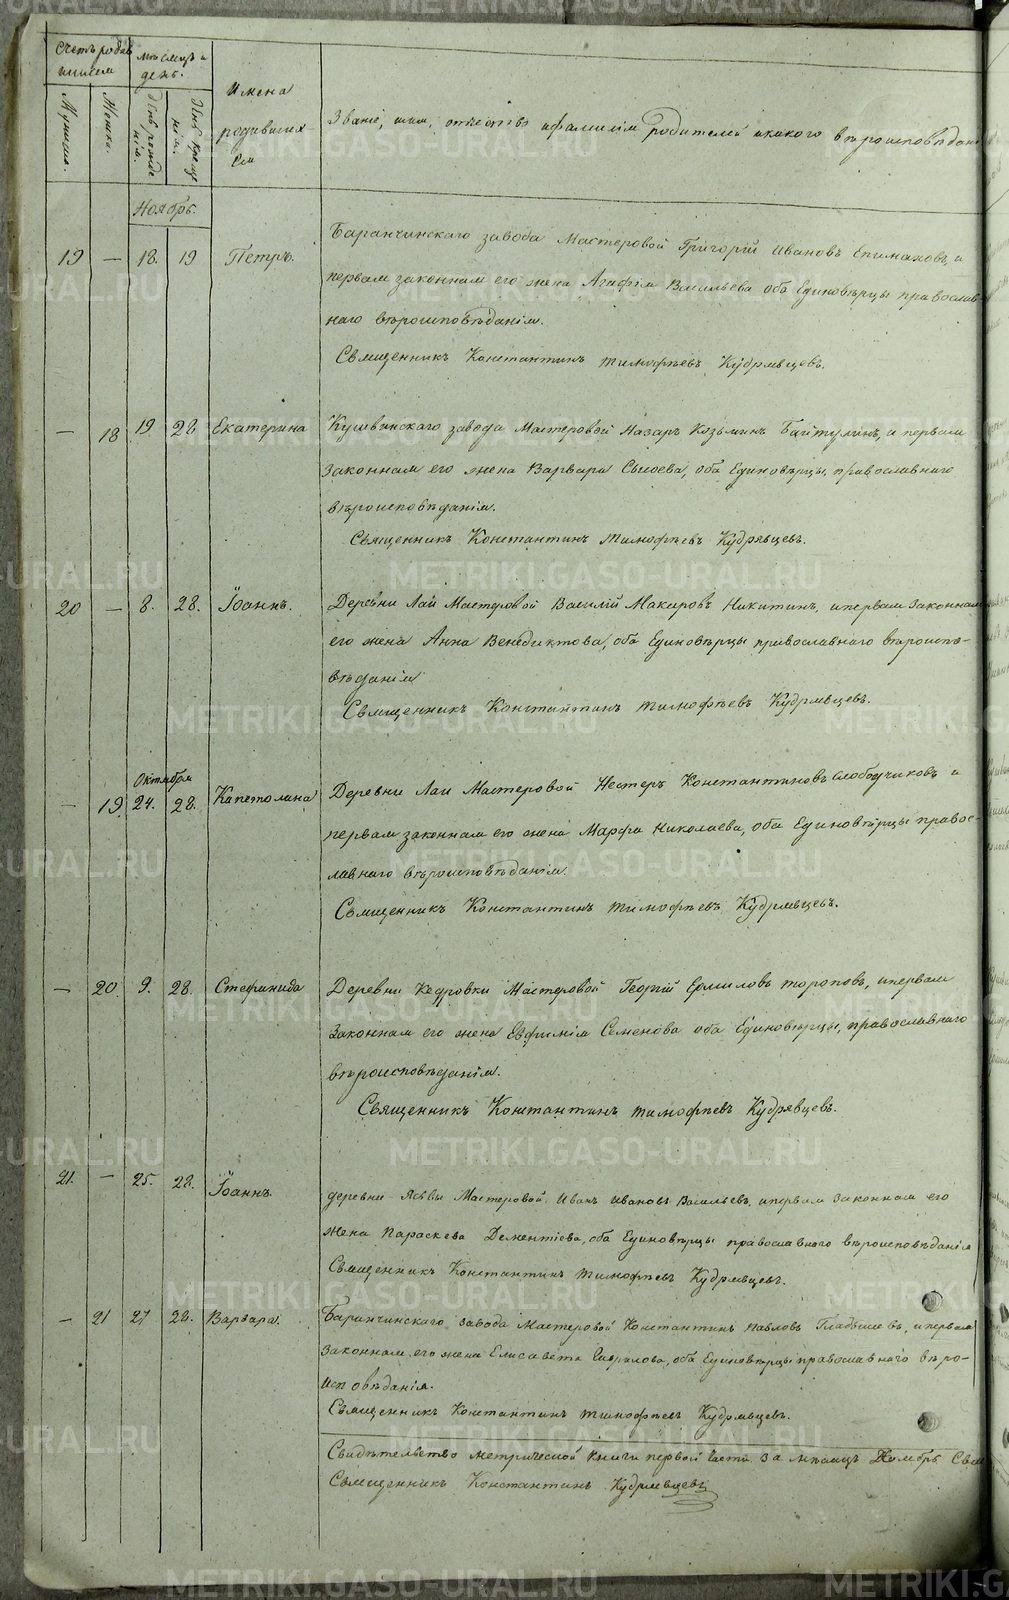 Счетъ родив
шихся
мѣсяцъ и
день.
Мужска.
Женска.
День рожде
нія.
День креще
нія.
Имена
родивших-
ся
Званіе, имя, отчество и фамилія родителей и какого вѣроисповѣдан
Ноябрь.
19 — 18. 19 Петръ.
Баранчинскаго завода Мастеровой Григорій Ивановъ Епимаховъ, и
первая законная его жена Агафія Васильева оба Единовѣрцы православ-
наго вѣроисповѣданія.
Священникъ Константинъ Тимофѣевъ Кудрявцевъ.
— 18 19 28 Екатерина
Кушвинскаго завода Мастеровой Назаръ Козьминъ Байтулинъ, и первая
законная его жена Варвара Сысоева, оба Единовѣрцы, православнаго
вѣроисповѣданія.
Священникъ Константинъ Тимофѣевъ Кудрявцевъ.
20 — 8. 28. Іоаннъ.
Деревни Лаи Мастеровой Василій Макаровъ Никитинъ, и первая законная
его жена Анна Венедиктова, оба Единовѣрцы православнаго вѣроиспо-
вѣданія
Священникъ Константинъ Тимофѣевъ Кудрявцевъ.
Октября
— 19. 24. 28. Капетолина
Деревни Лаи Мастеровой Нестеръ Константиновъ Слободчиковъ и
первая законная его жена Марфа Николаева, оба Единовѣрцы правос-
лавнаго вѣроисповѣданія.
Священникъ Константинъ Тимофѣевъ Кудрявцевъ.
— 20. 9. 28. Стефанида
Деревни Кедровки Мастеровой Георгій Ермиловъ Тороповъ, и первая
законная его жена Евфимія Семенова оба Единовѣрцы, православнаго
вѣроисповѣданія.
Священникъ Константинъ Тимофѣевъ Кудрявцевъ.
21. — 25. 28. Іоаннъ
деревни Ясьвы Мастеровой Иванъ Ивановъ Васильевъ, и первая законная его
жена Параскева Дементіева, оба Единовѣрцы православнаго вѣроисповѣданія
Священникъ Константинъ Тимофѣевъ Кудрявцевъ.
— 21 27 28. Варвара.
Баранчинскаго завода Мастеровой Константинъ Павловъ Гладышевъ, и первая
законная его жена Елисавета Гаврилова, оба Единовѣрцы православнаго вѣро-
исповѣданія.
Священникъ Константинъ Тимофѣевъ Кудрявцевъ.
Свидѣтельство метрической книги первой части за мѣсяцъ Ноябрь
Священникъ Константинъ Кудрявцевъ
METRIKI.GASO-URAL.RU